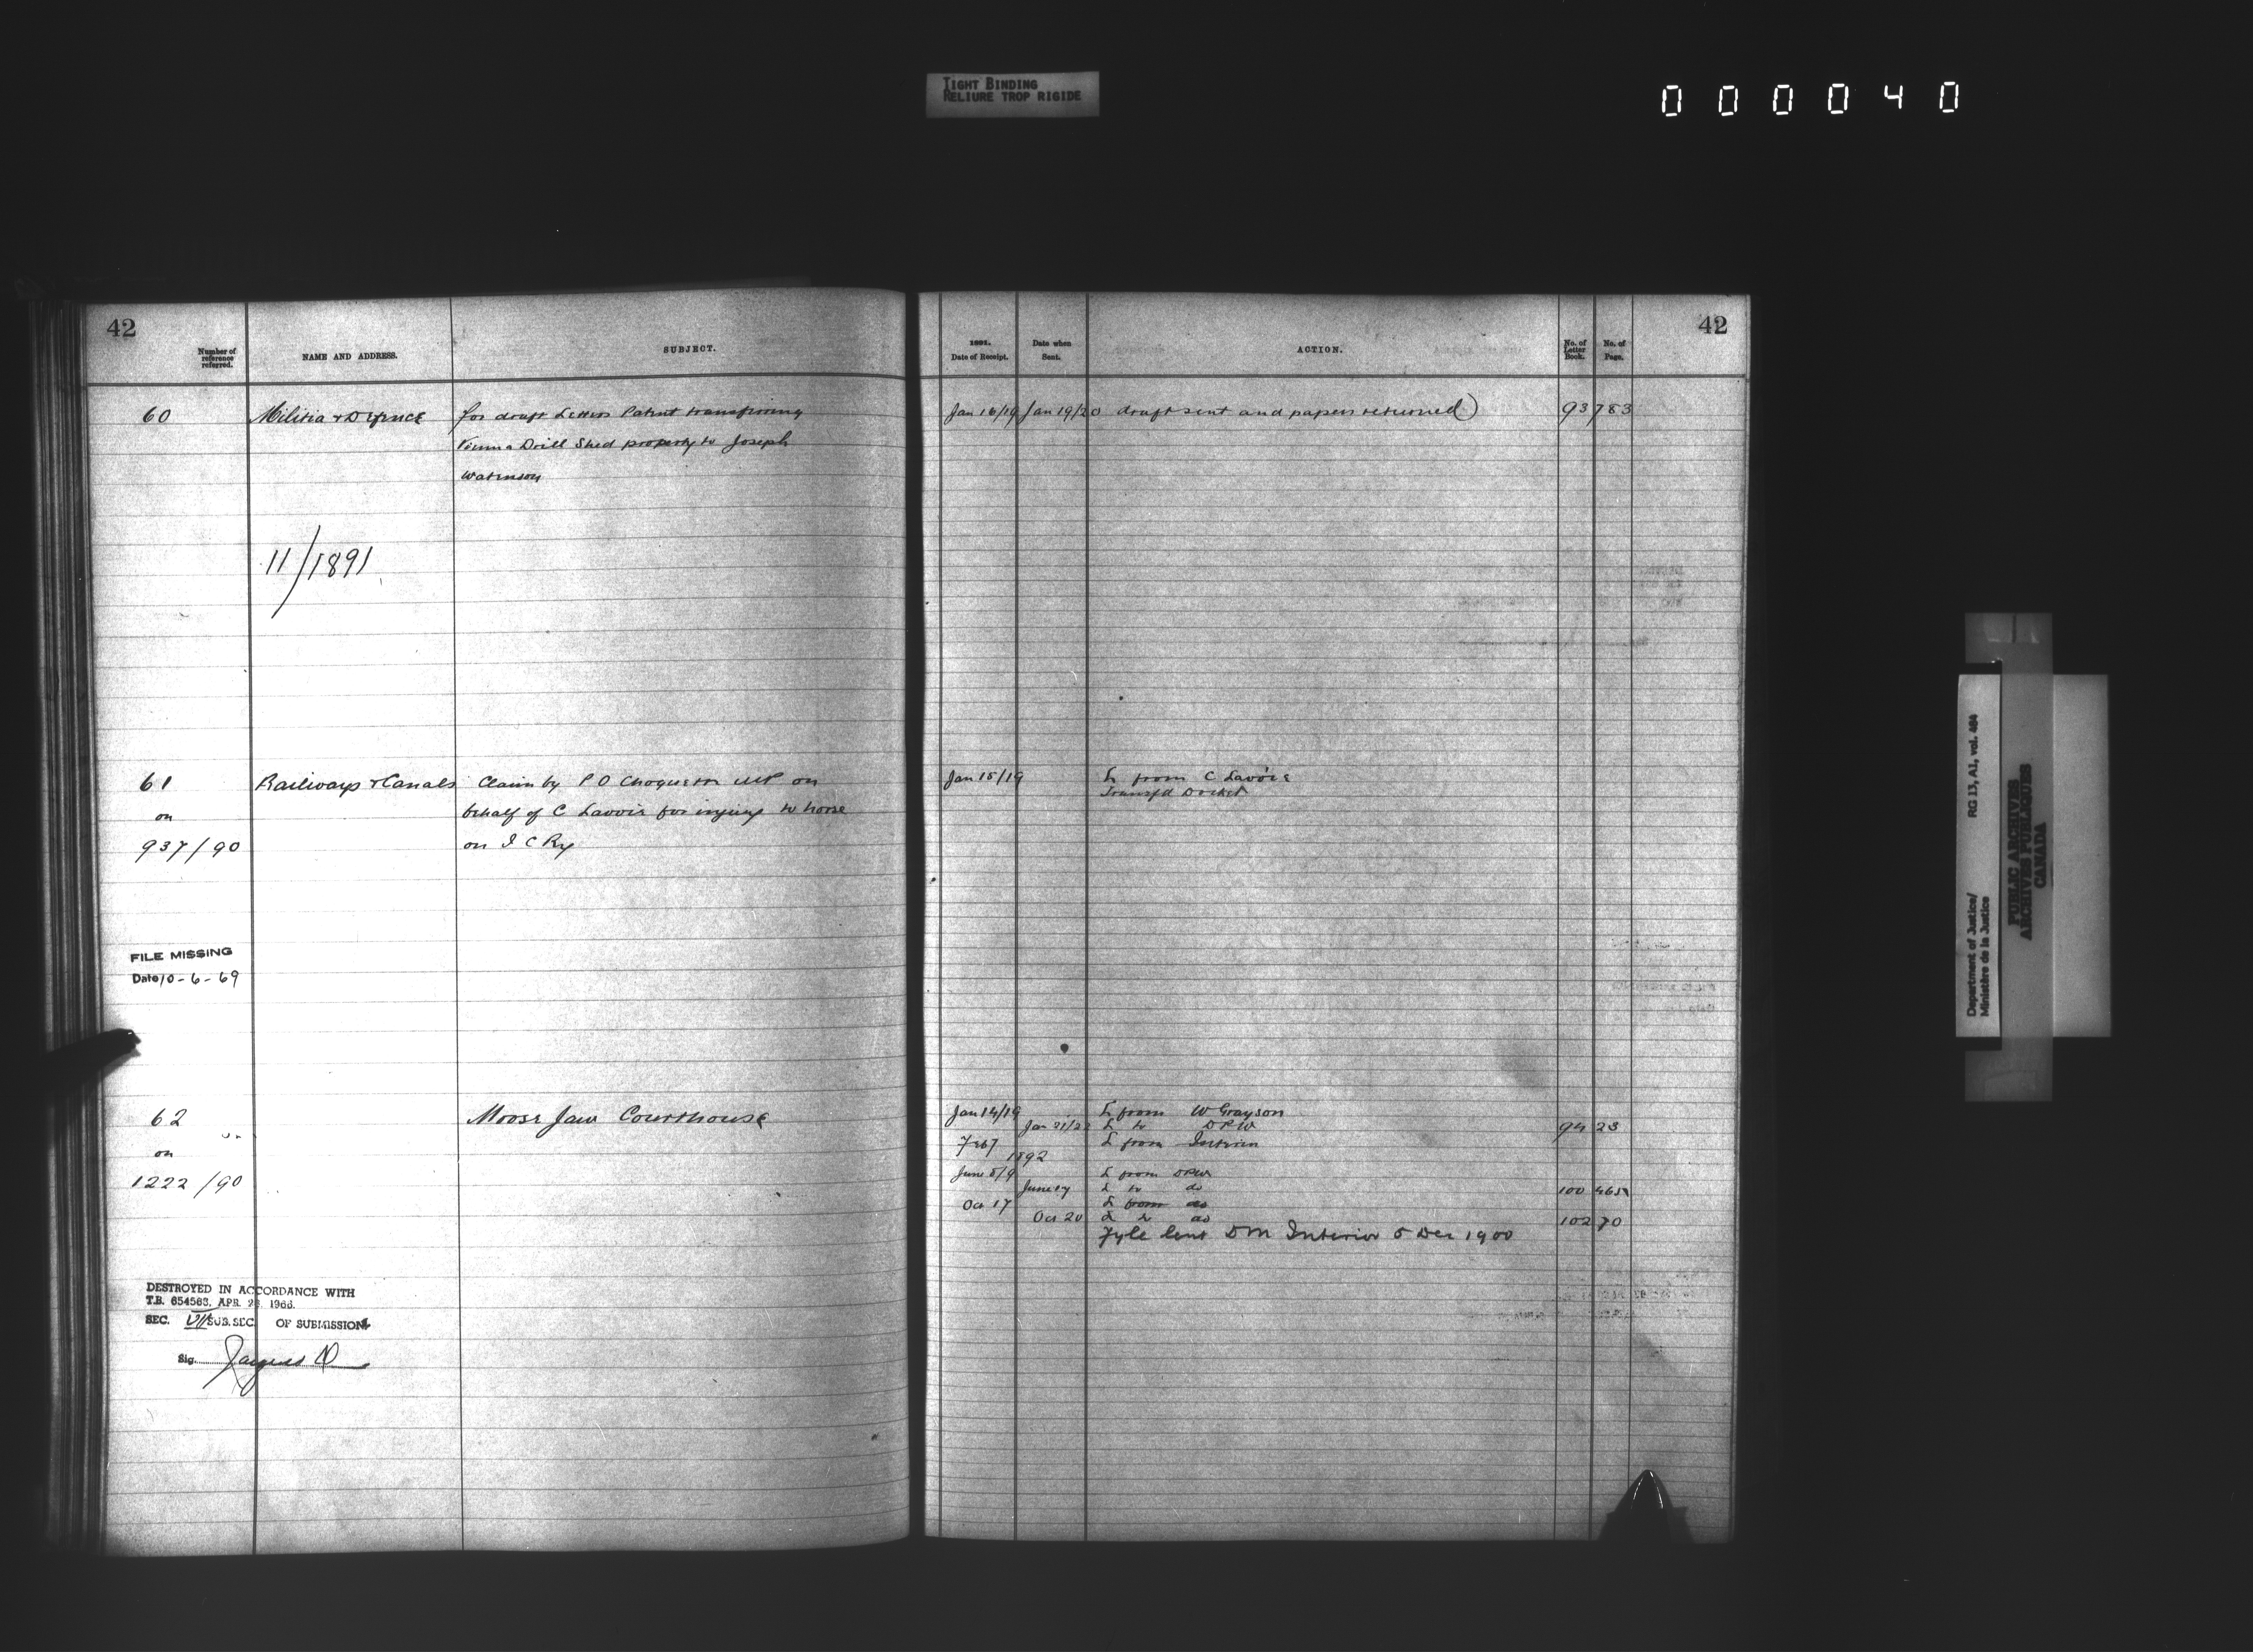 TIGHT BINDING
RELIURE TROP RIGIDE
0 0 0 0 4 0
42
Number of reference referred.
NAME AND ADDRESS.
SUBJECT.
60
Militia & Defence
for draft Letters Patent transferring
Vienna Drill Shed property to Joseph
11/1891
61
on
937/90
Railways & Canals
Claim by P O Choquette MP on
behalf of C Lavoie for injury to horse
on I C Ry
FILE MISSING
Date 10-6-69
62
on
1222/90
Moose Jaw Courthouse
DESTROYED IN ACCORDANCE WITH
T.B. 654563, APR. 1966.
SEC. VII SUB. SEC. OF SUBMISSION
Sig.
42
1891.
Date of Receipt.
Date when Sent.
ACTION.
No. of Letter Book.
No. of Page.
Jan 16/19 Jan 19/20 draft sent and papers returned) 93 783
Jan 15/19 L from C Lavoie
Transfd Docket
Jan 14/19 L from W Grayson
Jan 21/22 L to DPW 94 23
Feb 7 L from Interior
1892
June 8/9 L from DPW
June 17 L to do 100 465
Oct 17 L from do
Oct 20 L to do 102 70
Fyle lent D M Interior 5 Dec 1900
Department of Justice/
Ministère de la Justice
RG 13, A1, vol. 464
PUBLIC ARCHIVES
ARCHIVES PUBLIQUES
CANADA